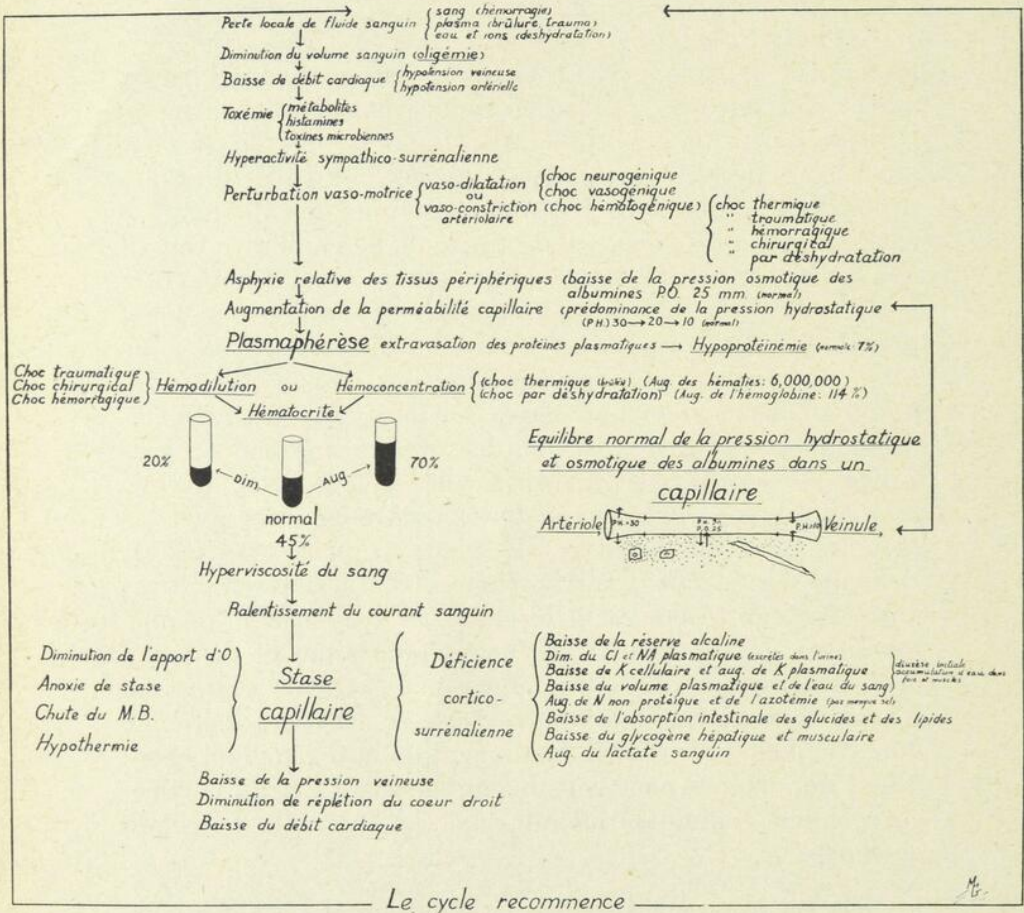 Perte locale de fluide sanguin { sang (hémorragie)
plasma (brûlure, trauma)
eau et ions (deshydratation)
Diminution du volume sanguin (oligémie)
Baisse de débit cardiaque { hypotension veineuse
hypotension artérielle
Toxémie { métabolites
histamines
toxines microbiennes
Hyperactivité sympathico-surrénalienne
Perturbation vaso-motrice { vaso-dilatation { choc neurogénique
choc vasogénique
ou
vaso-constriction (choc hématogénique) { choc thermique
artériolaire
" traumatique
" hémorragique
" chirurgical
" par déshydratation
Asphyxie relative des tissus périphériques (baisse de la pression osmotique des
albumines P.O. 25 mm. (normal)
Augmentation de la perméabilité capillaire (prédominance de la pression hydrostatique
(P.H.) 30→20→10 (normal)
Plasmaphérèse extravasation des protéines plasmatiques → Hypoprotéinémie (normale: 7%)
Choc traumatique
Choc chirurgical
Choc hémorragique } Hémodilution ou Hémoconcentration { (choc thermique (brûlé) (Aug. des hématies: 6,000,000)
(choc par déshydratation) (Aug. de l'hémoglobine: 114 %)
Hématocrite
20% Dim. Aug 70%
normal
45%
Equilibre normal de la pression hydrostatique
et osmotique des albumines dans un
capillaire
Artériole P.H.=30 P.O.25 P.H.=10 Veinule
Hyperviscosité du sang
Ralentissement du courant sanguin
Diminution de l'apport d'O
Anoxie de stase
Chute du M.B.
Hypothermie
Stase
capillaire
Déficience
cortico-
surrénalienne
Baisse de la réserve alcaline
Dim. du Cl et NA plasmatique (excrétés dans l'urine)
Baisse de K cellulaire et aug. de K plasmatique
Baisse du volume plasmatique et de l'eau du sang
diurèse initiale
accumulation d'eau dans
foie et muscles
Aug. de N non protéique et de l'azotémie (par manque sel)
Baisse de l'absorption intestinale des glucides et des lipides
Baisse du glycogène hépatique et musculaire
Aug. du lactate sanguin
Baisse de la pression veineuse
Diminution de réplétion du coeur droit
Baisse du débit cardiaque
Le cycle recommence